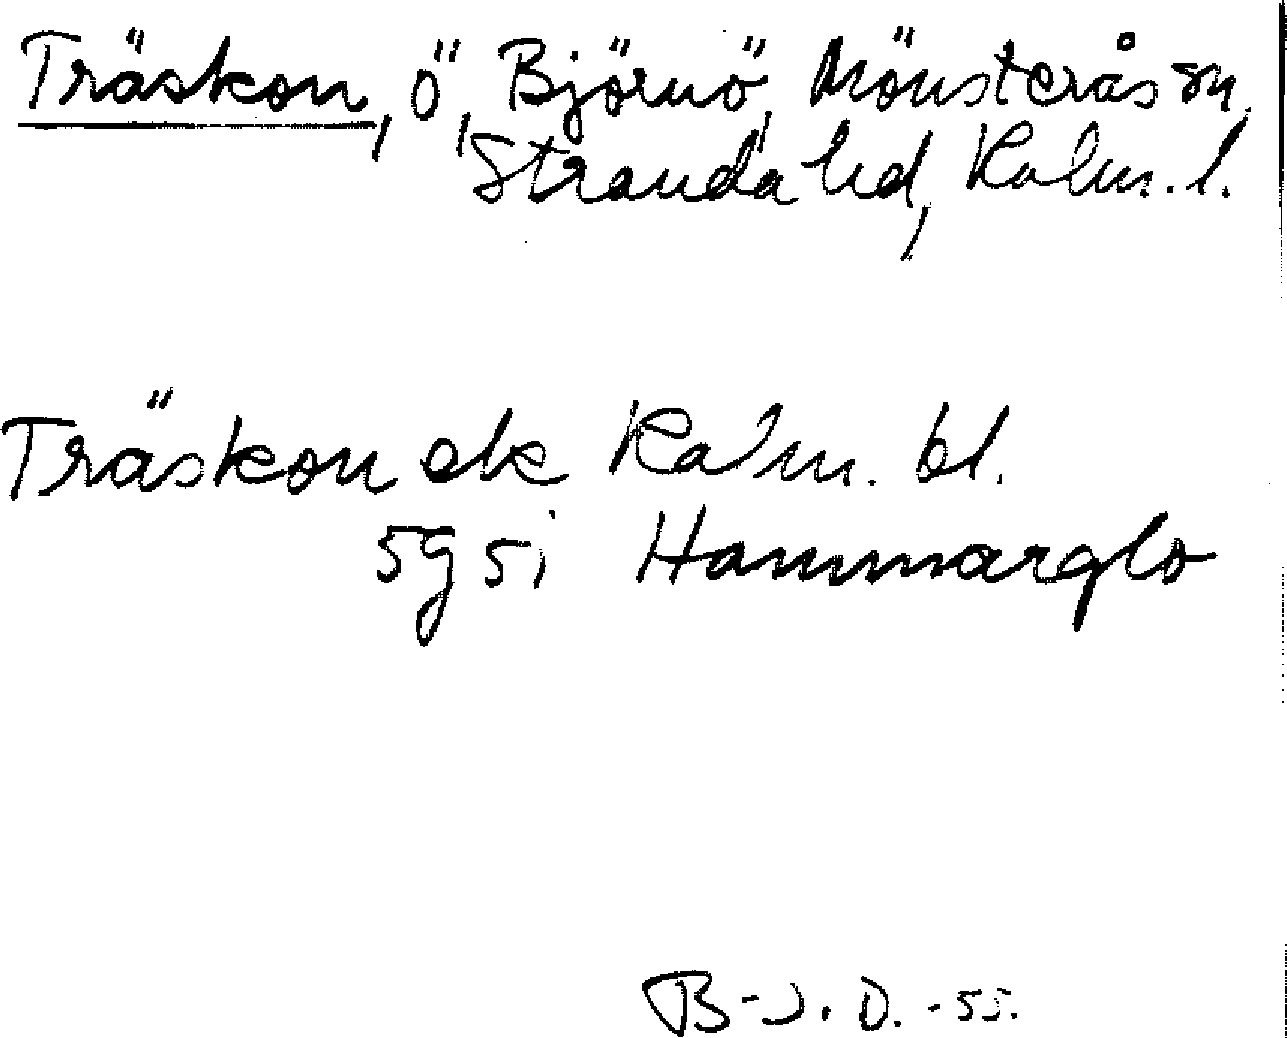 Träskon, ö, Björnö, Mönsterås sn,
Stranda hd, Kalm. l.
Träskon ek Kalm. bl.
5g5i Hammarglo
B-J. D. -55.